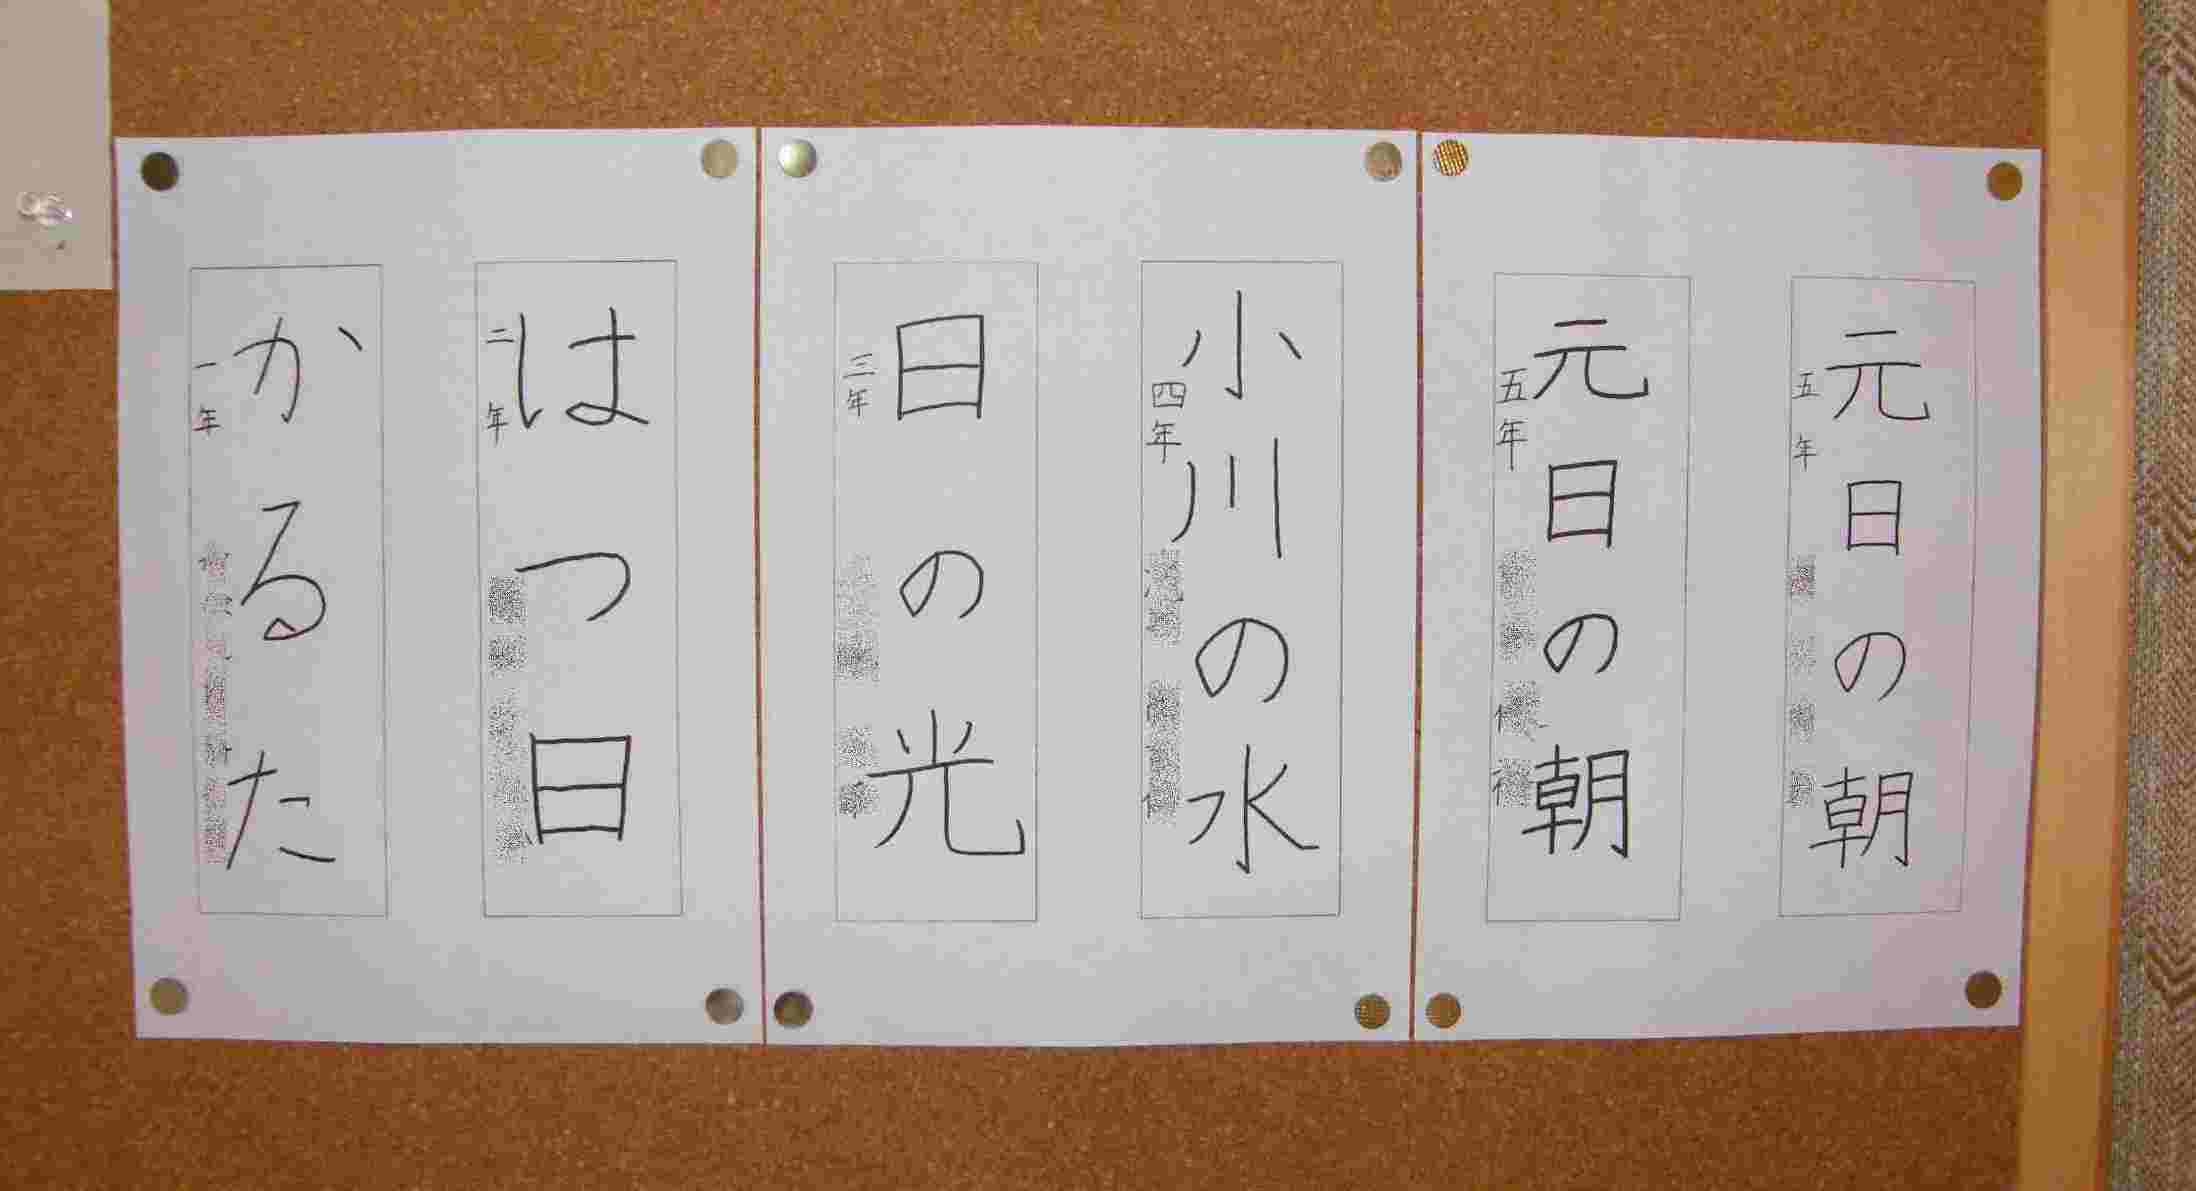 元日の朝
五年
元日の朝
五年
小川の水
四年
日の光
三年
はつ日
二年
かるた
一年